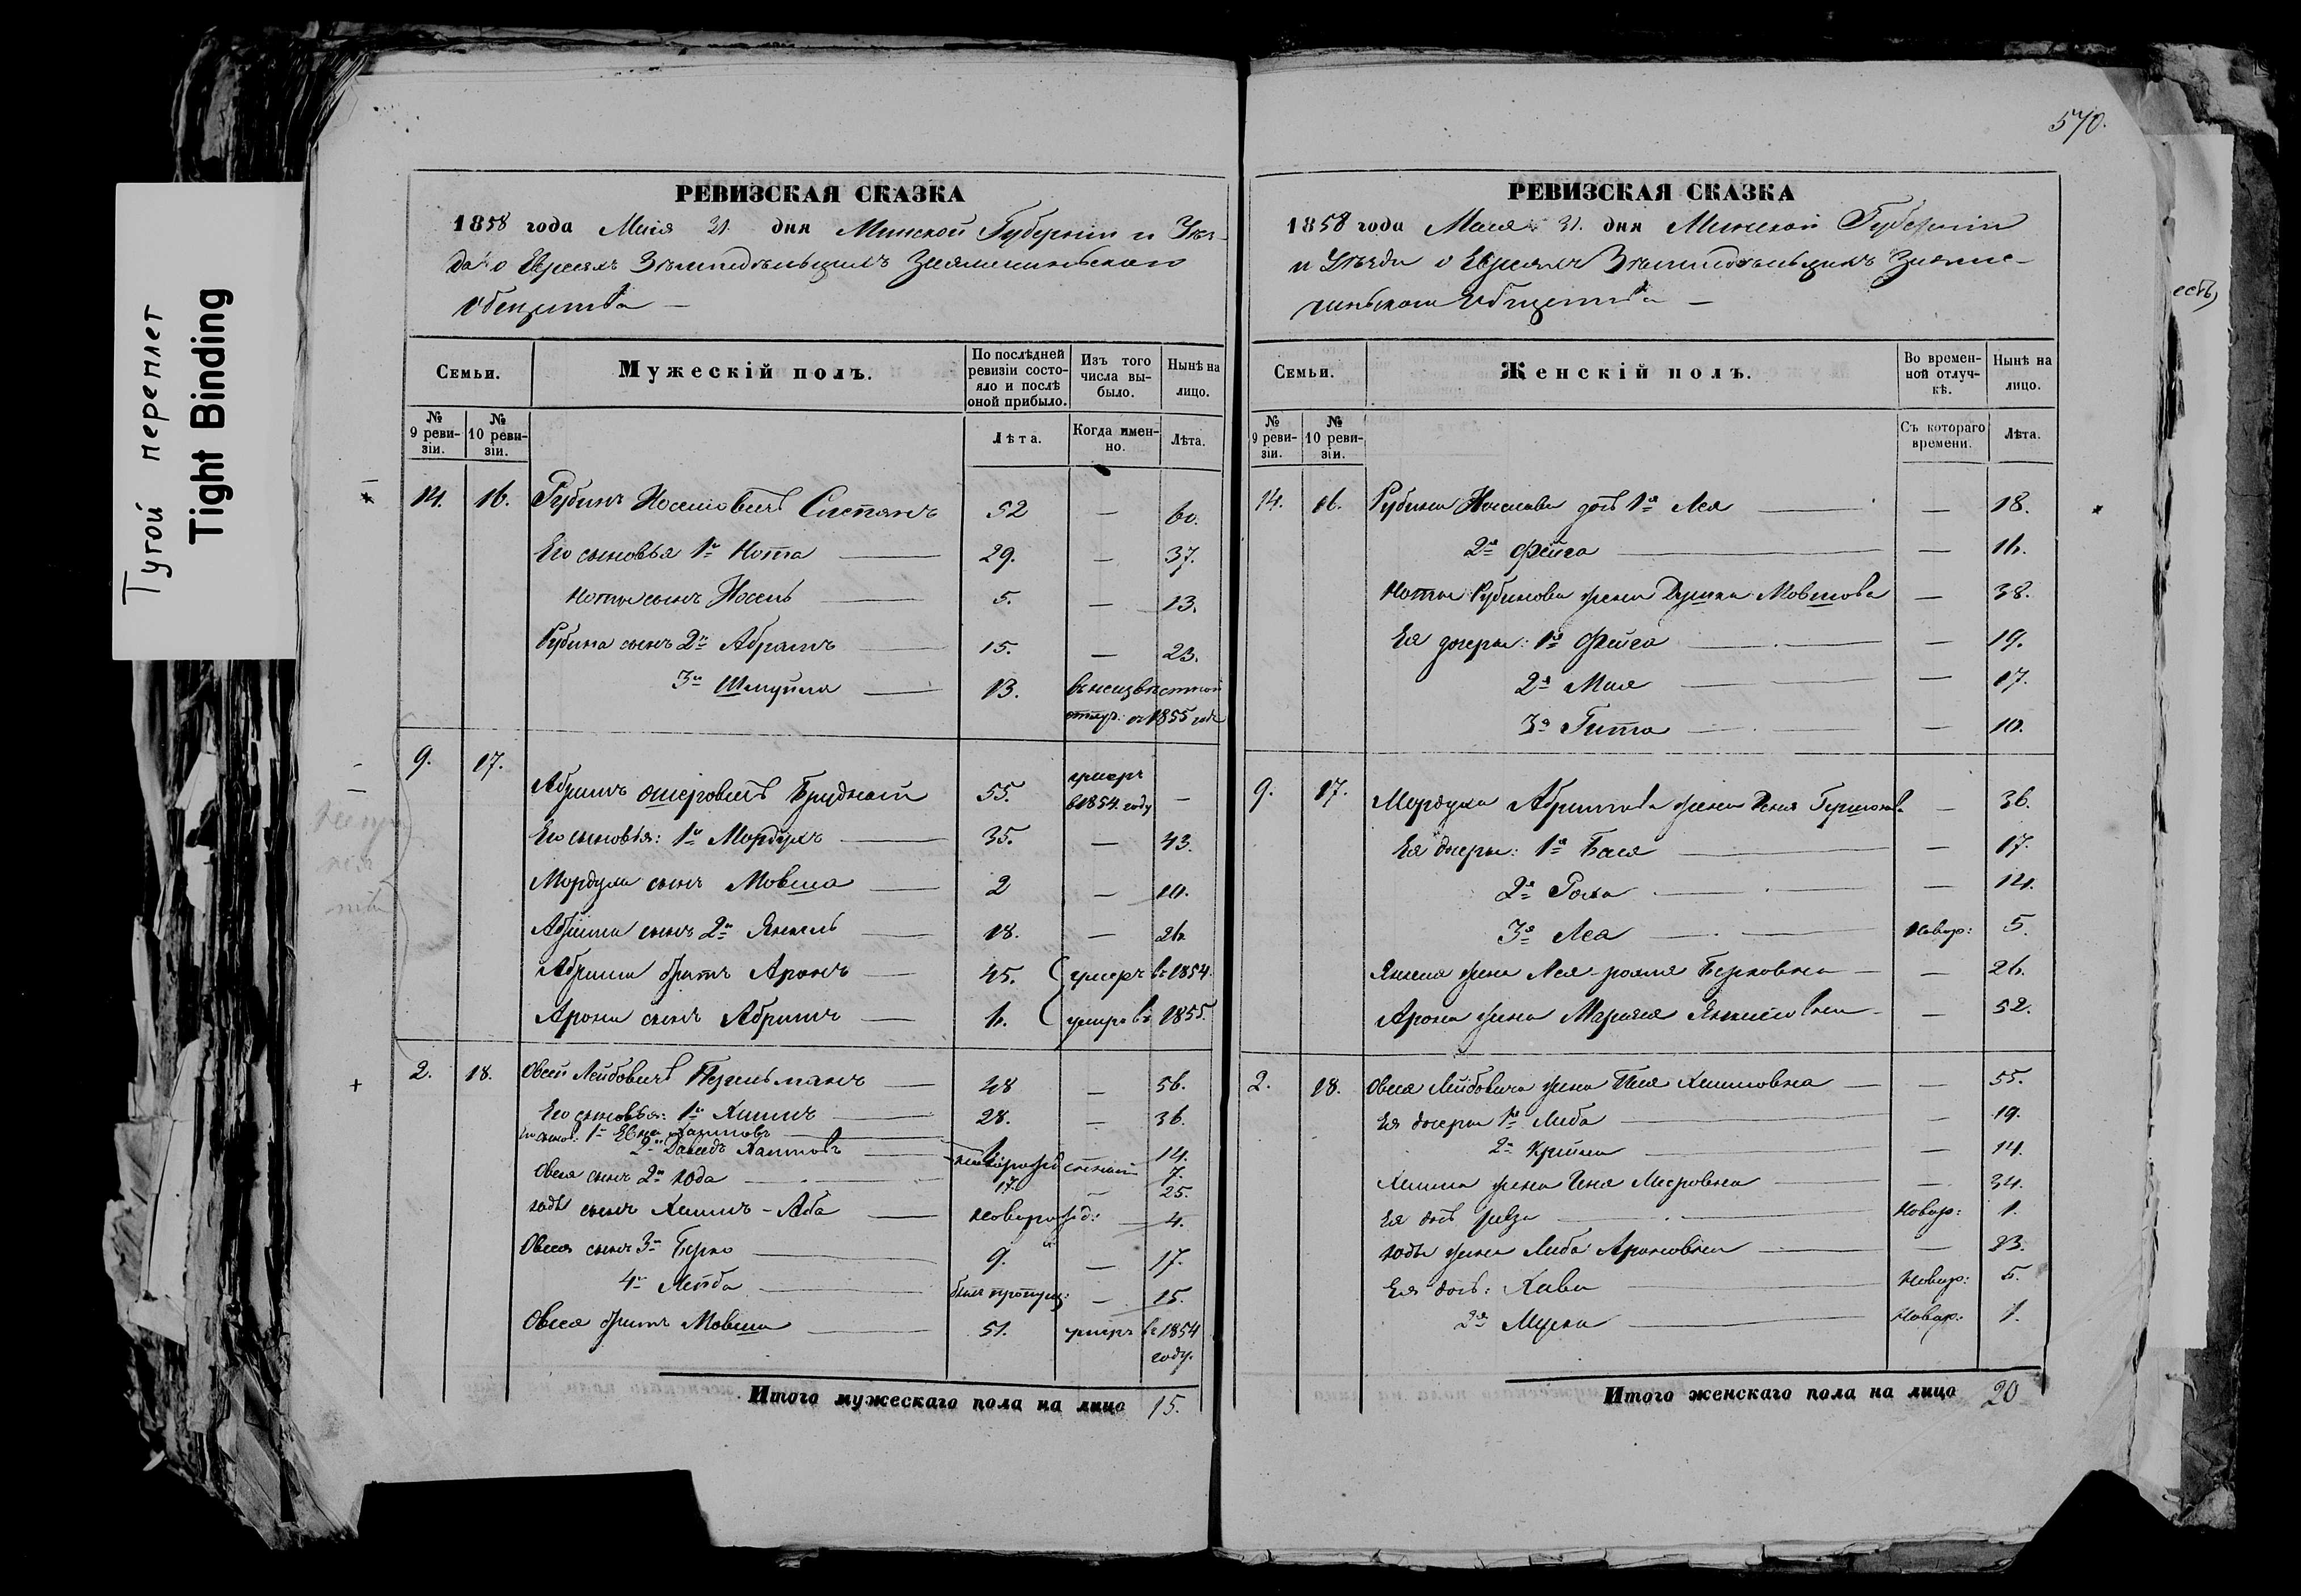 Тугой переплет
Tight Binding
570.
РЕВИЗСКАЯ СКАЗКА
1858 года Мая 31. дня Минской Губерніи и Уѣз-
да о Евреяхъ Земледѣльцахъ
Общества —
Семьи.
Мужескій полъ.
По послѣдней ревизіи состояло и послѣ оной прибыло.
Изъ того числа выбыло.
Нынѣ на лицо.
№ 9 ревизіи.
№ 10 ревизіи.
Лѣта.
Когда именно.
Лѣта.
14. 16. Рубинъ Носеловичъ 52 — 60.
Его сыновья 1й Нота — 29. — 37.
Ноты сынъ Носель — 5. — 13.
Рубина сынъ 2й Абрамъ — 15. — 23.
3й Шмуйла — 13. въ неизвѣстной
отлуч: съ 1855 года
9. 17. Абрамъ Ошеровичъ Брудный 55. умеръ в 1854. году —
Его сыновья: 1й Мордухъ — 35. — 43.
Мордуха сынъ Мовша — 2 — 10.
Абрама сынъ 2й Янкель — 18. — 26.
Абрама братъ Аронъ — 45. умеръ въ 1854.
Арона сынъ Абрамъ — 6. умеръ въ 1855.
2. 18. Овсей Лейбовичъ Перельманъ — 48 — 56.
Его сыновья: 1й Хаимъ — 28. — 36.
1й Евна Хаимовъ — 6. 14.
2й Давидъ Хаимовъ — новорожденный 7.
Овсея сынъ 2й Юда — 17. — 25.
Юды сынъ Хаимъ-Аба — новорожд: — 4.
Овсея сынъ 3й Берко — 9. — 17.
4й Лейба — былъ пропущ: — 15.
Овсея братъ Мовша — 51. умеръ въ 1854
году.
Итого мужескаго пола на лицо 15.
РЕВИЗСКАЯ СКАЗКА
1858 года Мая 31. дня Минской Губерніи
и Уѣзда о Евреяхъ Земледѣльцахъ
Общества —
Семьи.
Женскій полъ.
Во временной отлучкѣ.
Нынѣ на лицо.
№ 9 ревизіи.
№ 10 ревизіи.
Съ котораго времени.
Лѣта.
14. 16. Рубина дочь 1я Лея — — 18.
2я Фейга — — 16.
Ноты Рубинова жена Душка Мовшова — 38.
Ея дочери: 1я Фейга — — 19.
2я — — 17.
3я Гита — — 10.
9. 17. Мордуха Абрамова жена — 36.
Ея дочери: 1я Бася — — 17.
2я — — 14.
3я Леа — Новор: 5.
Янкеля жена Лея-рохля Берковна — — 26.
Арона жена Маряся Янкелевна — — 52.
2. 18. Овсея Лейбовича жена Хаимовна — — 55.
Ея дочери 1я Либа — — 19.
2я Крейна — — 14.
Хаима жена Меровна — — 34.
Ея дочь — Новор: 1.
Юды жена Либа Ароновна — — 23.
Ея дочь: Хава — Новор: 5.
2я Муска — Новор: 1.
Итого женскаго пола на лицо 20